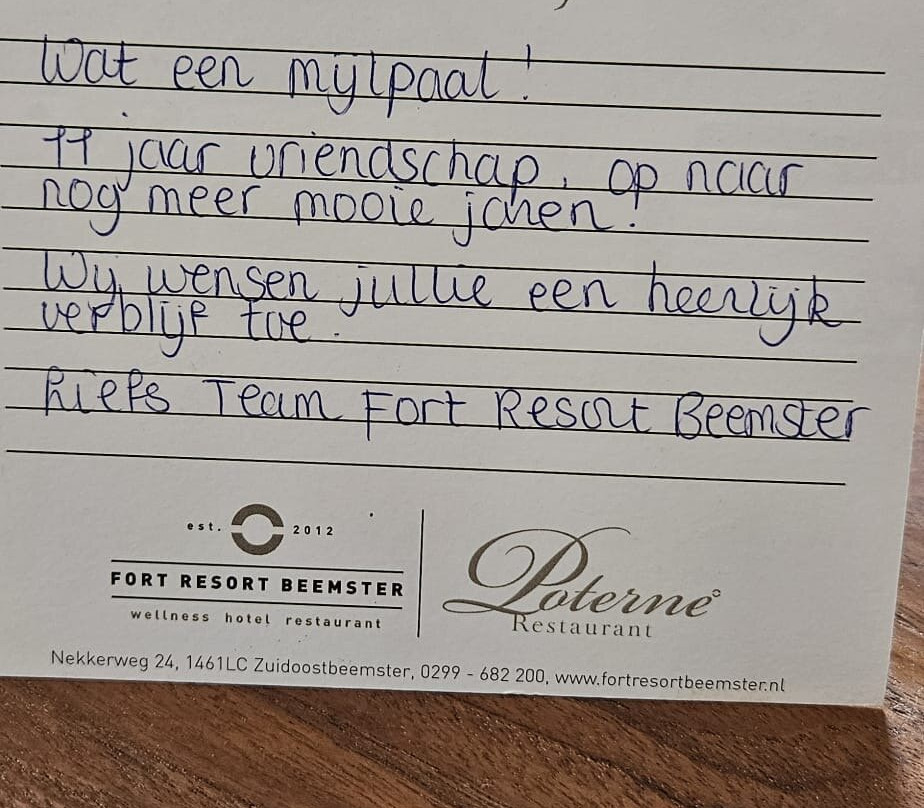 Wat een mijlpaal!
11 jaar vriendschap, op naar
nog meer mooie jaren!
Wij wensen jullie een heerlijk
verblijf toe.
Liefs Team Fort Resort Beemster
est. 2012
FORT RESORT BEEMSTER
wellness hotel restaurant
Poterne
Restaurant
Nekkerweg 24, 1461LC Zuidoostbeemster, 0299 - 682 200, www.fortresortbeemster.nl